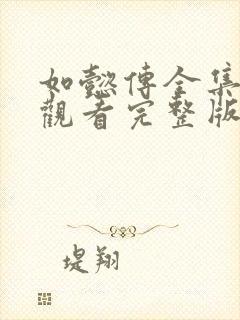 如懿傳全集
觀看完整版
堤翔